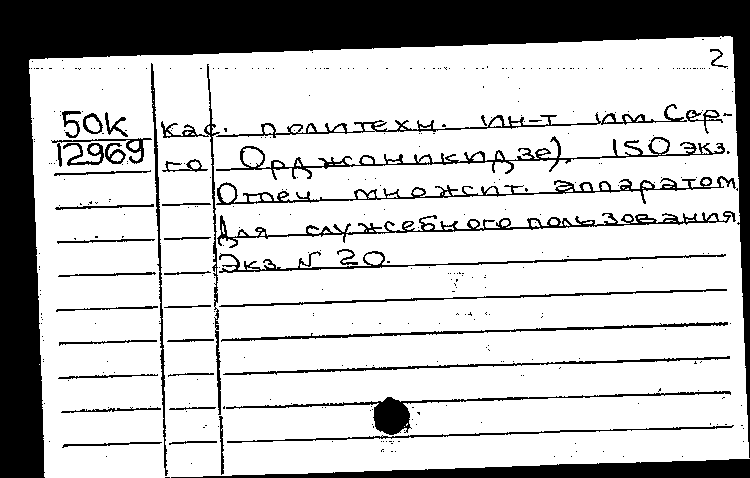 2
50К кас. политехн. ин-т им. Сер-
12969 го Орджоникидзе). 150 экз.
Отпеч. множит. аппаратом
Для служебного пользования
Экз. № 20.